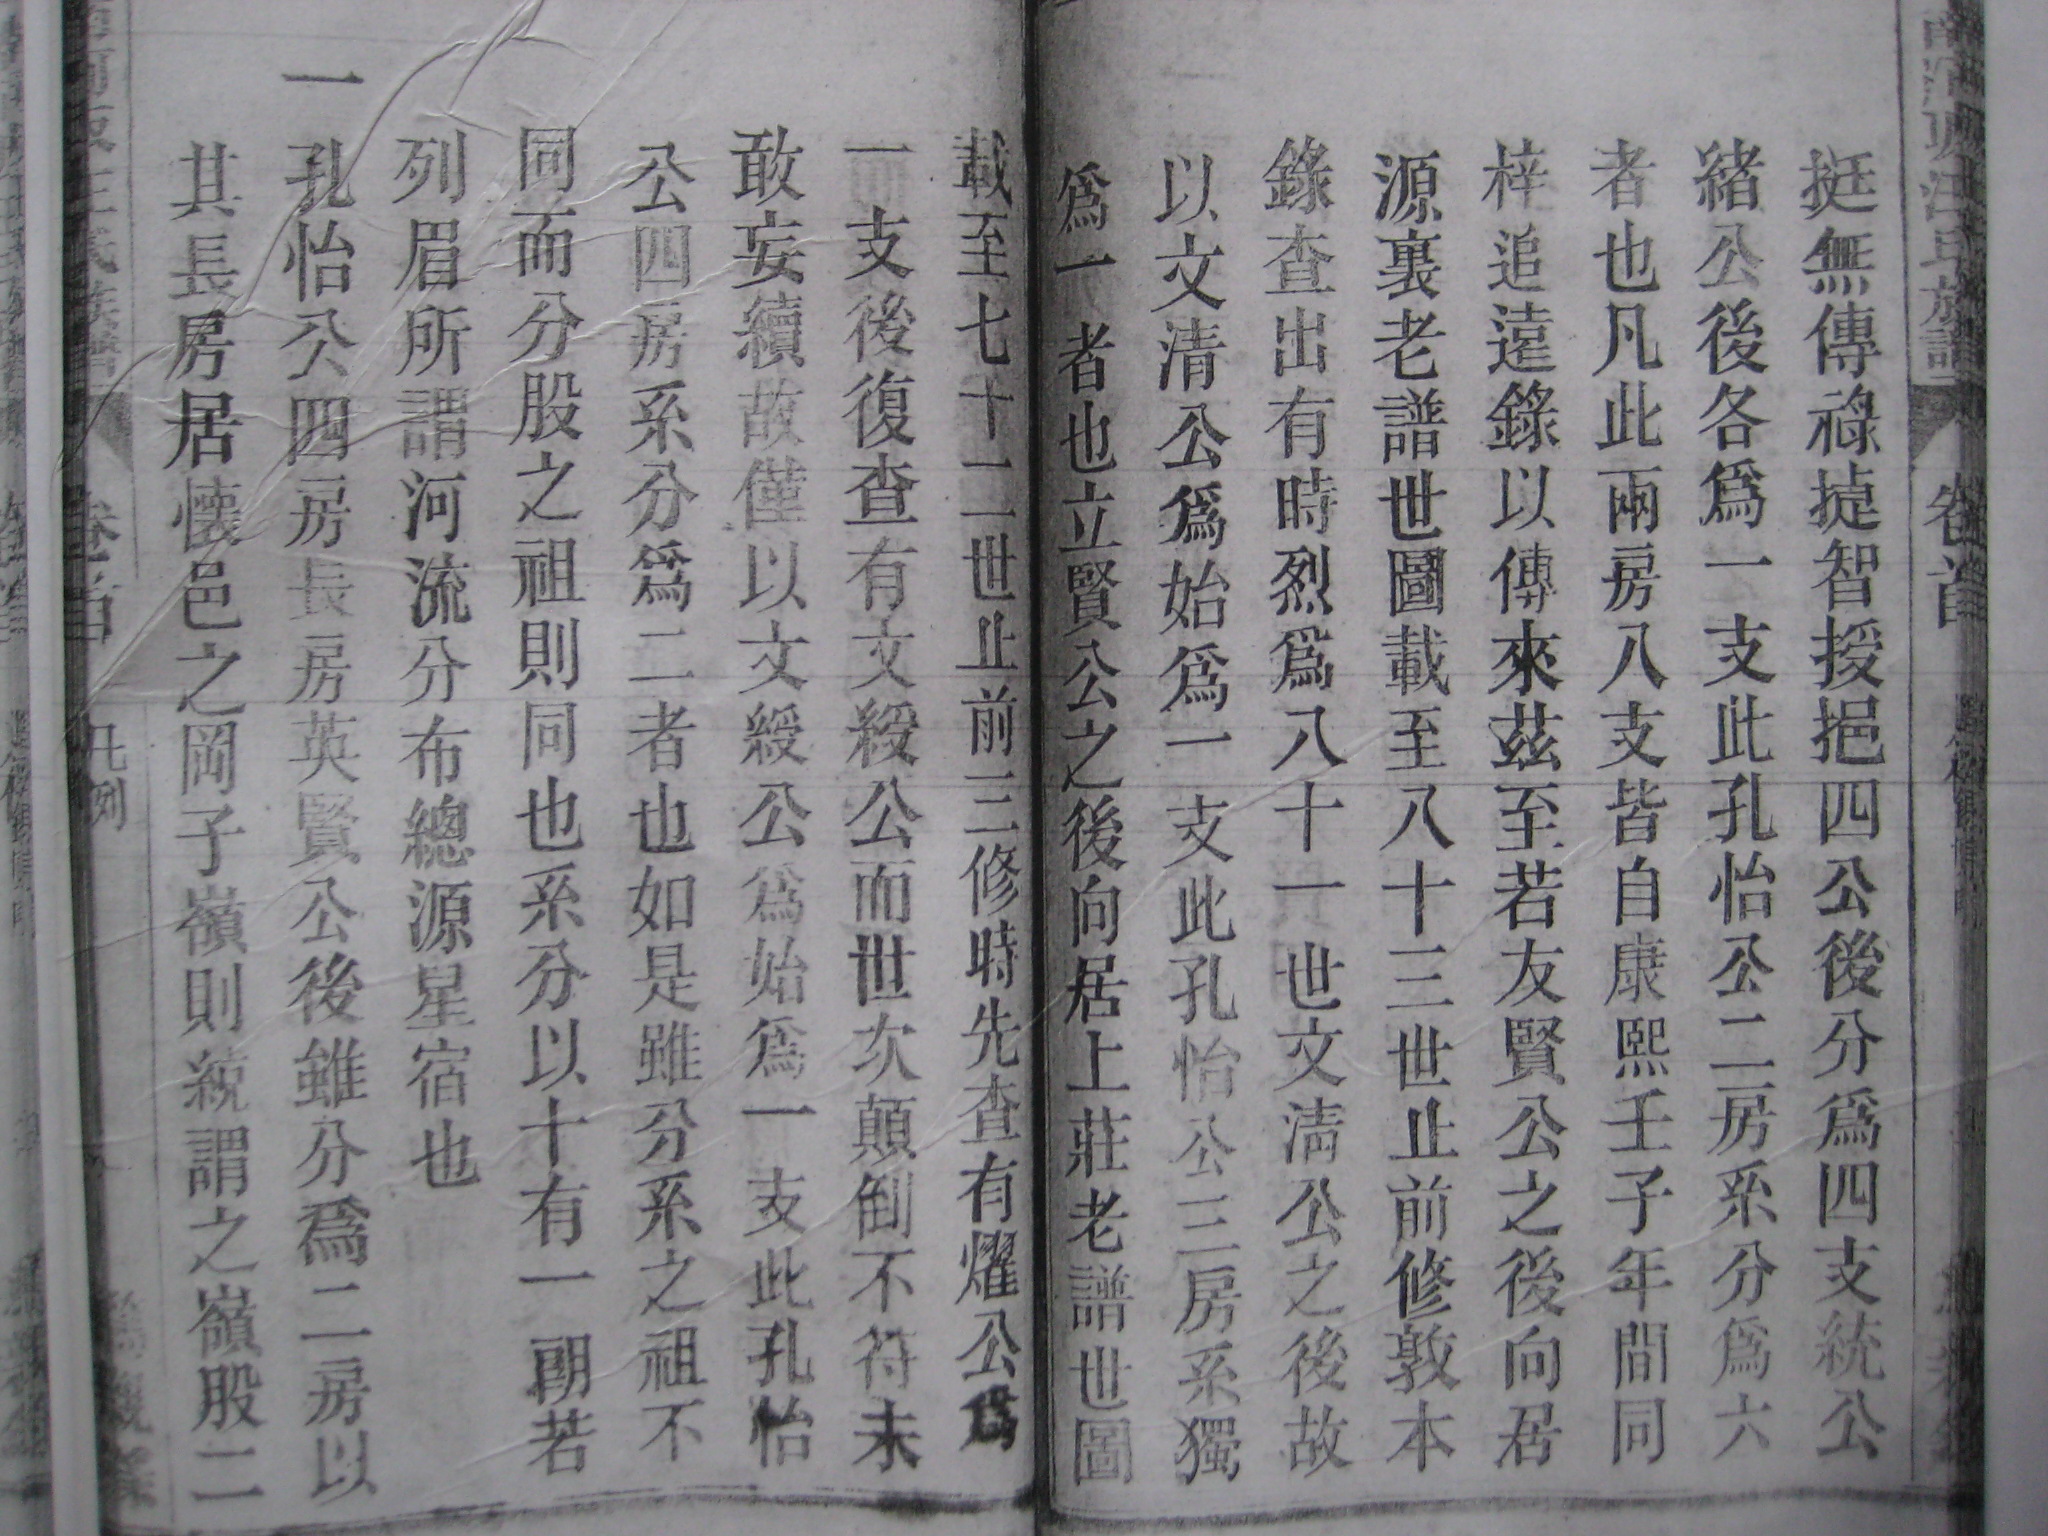 挺無傳祿㨗智授挹四公後分爲四支統公
緒公後各爲一支此孔怡公二房系分爲六
者也凡此兩房八支皆自康熙壬子年間同
梓追遠錄以傳來茲至若友賢公之後向居
源裏老譜世圖載至八十三世止前修敦本
錄查出有時烈爲八十一世文淸公之後故
以文清公爲始爲一支此孔怡公三房系獨
爲一者也立賢公之後向居上莊老譜世圖
載至七十二世止前三修時先查有燿公爲
一支後復查有文綬公而世次顛倒不符未
敢妄續故僅以文綬公爲始爲一支此孔怡
公四房系分爲二者也如是雖分系之祖不
同而分股之祖則同也系分以十有一朗若
列眉所謂河流分布總源星宿也
一
孔怡公四房長房英賢公後雖分爲二房以
其長房居懷邑之岡子嶺則統謂之嶺股二
卷首
凡例